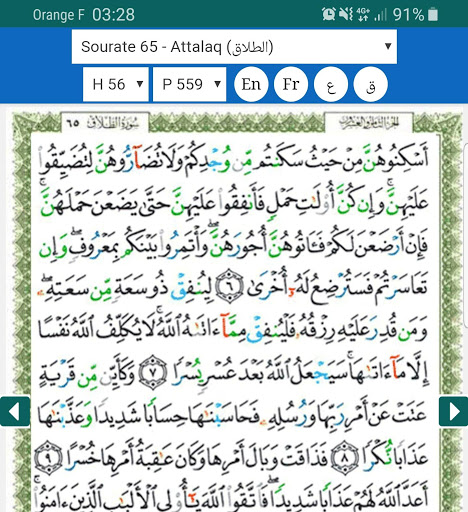 Orange F 03:28 4G+ 91%
Sourate 65 - Attalaq (الطلاق)
H 56 P 559 En Fr ع ق
سُورَةُ الطَّلَاق ٦٥
أَسْكِنُوهُنَّ مِنْ حَيْثُ سَكَنتُم مِّن وُجْدِكُمْ وَلَا تُضَآرُّوهُنَّ لِتُضَيِّقُوا۟
عَلَيْهِنَّ ۚ وَإِن كُنَّ أُو۟لَٰتِ حَمْلٍ فَأَنفِقُوا۟ عَلَيْهِنَّ حَتَّىٰ يَضَعْنَ حَمْلَهُنَّ ۚ
فَإِنْ أَرْضَعْنَ لَكُمْ فَـَٔاتُوهُنَّ أُجُورَهُنَّ ۖ وَأْتَمِرُوا۟ بَيْنَكُم بِمَعْرُوفٍ ۖ وَإِن
تَعَاسَرْتُمْ فَسَتُرْضِعُ لَهُۥٓ أُخْرَىٰ ۝٦ لِيُنفِقْ ذُو سَعَةٍ مِّن سَعَتِهِۦ ۖ
وَمَن قُدِرَ عَلَيْهِ رِزْقُهُۥ فَلْيُنفِقْ مِمَّآ ءَاتَىٰهُ ٱللَّهُ ۚ لَا يُكَلِّفُ ٱللَّهُ نَفْسًا
إِلَّا مَآ ءَاتَىٰهَا ۚ سَيَجْعَلُ ٱللَّهُ بَعْدَ عُسْرٍ يُسْرًا ۝٧ وَكَأَيِّن مِّن قَرْيَةٍ
عَتَتْ عَنْ أَمْرِ رَبِّهَا وَرُسُلِهِۦ فَحَاسَبْنَٰهَا حِسَابًا شَدِيدًا وَعَذَّبْنَٰهَا
عَذَابًا نُّكْرًا ۝٨ فَذَاقَتْ وَبَالَ أَمْرِهَا وَكَانَ عَٰقِبَةُ أَمْرِهَا خُسْرًا ۝٩
أَعَدَّ ٱللَّهُ لَهُمْ عَذَابًا شَدِيدًا ۖ فَٱتَّقُوا۟ ٱللَّهَ يَٰٓأُو۟لِى ٱلْأَلْبَٰبِ ٱلَّذِينَ ءَامَنُوا۟ ۚ